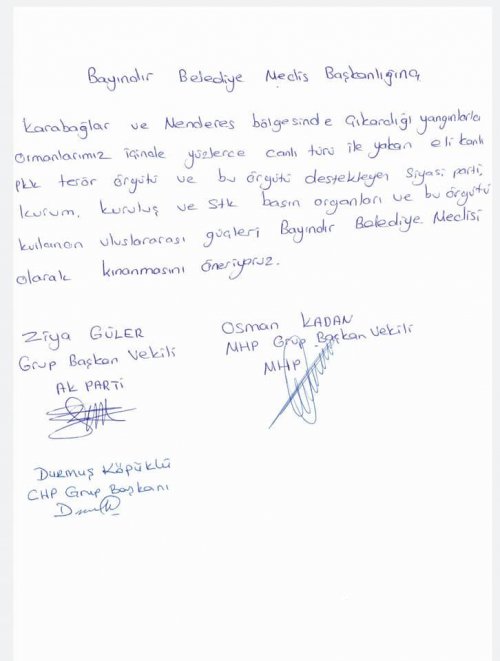 Bayındır Belediye Meclis Başkanlığına,
Karabağlar ve Menderes bölgesinde çıkardığı yangınlarla
ormanlarımız içinde yüzlerce canlı türü ile yakan eli kanlı
pkk terör örgütü ve bu örgütü destekleyen siyasi parti,
kurum, kuruluş ve stk basın organları ve bu örgütü
kullanan uluslararası güçleri Bayındır Belediye Meclisi
olarak kınanmasını öneriyoruz.
Ziya GÜLER
Grup Başkan Vekili
AK PARTİ
Osman KADAN
MHP Grup Başkan Vekili
MHP
Durmuş Köpüklü
CHP Grup Başkanı